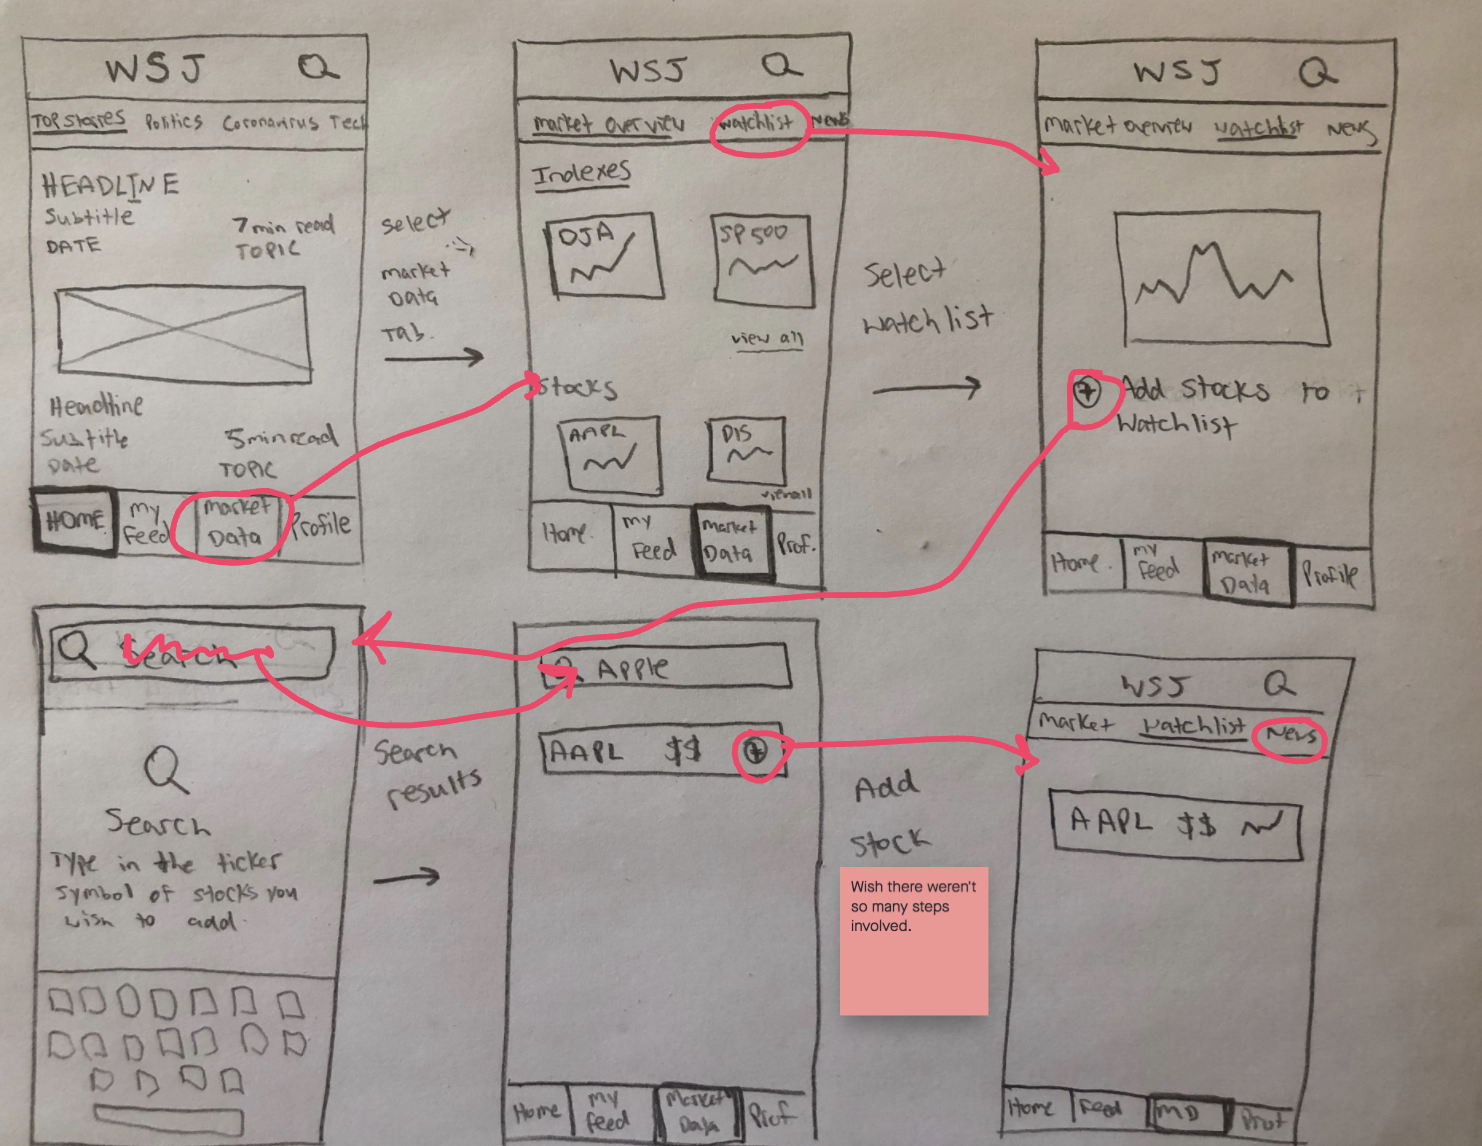 WSJ
TOP stories Politics Coronavirus Tech
HEADLINE
Subtitle
7 min read
DATE
TOPIC
Headline
Subtitle
5 min read
Date
TOPIC
HOME
my Feed
market Data
Profile
Select
market
Data
Tab.
WSJ
market overview watchlist News
Indexes
DJA
SP500
view all
Stocks
AAPL
DIS
view all
Home
my Feed
market Data
Prof.
Select
Watchlist
WSJ
market overview watchlist News
Add Stocks to
Watchlist
Home.
my Feed
market Data
Profile
Search
Search
Type in the ticker
symbol of stocks you
wish to add.
Search
results
Apple
AAPL $$ +
Home
my feed
Market Data
Prof
Add
Stock
Wish there weren't
so many steps
involved.
WSJ
Market Watchlist News
AAPL $$
Home
Feed
MD
Prof